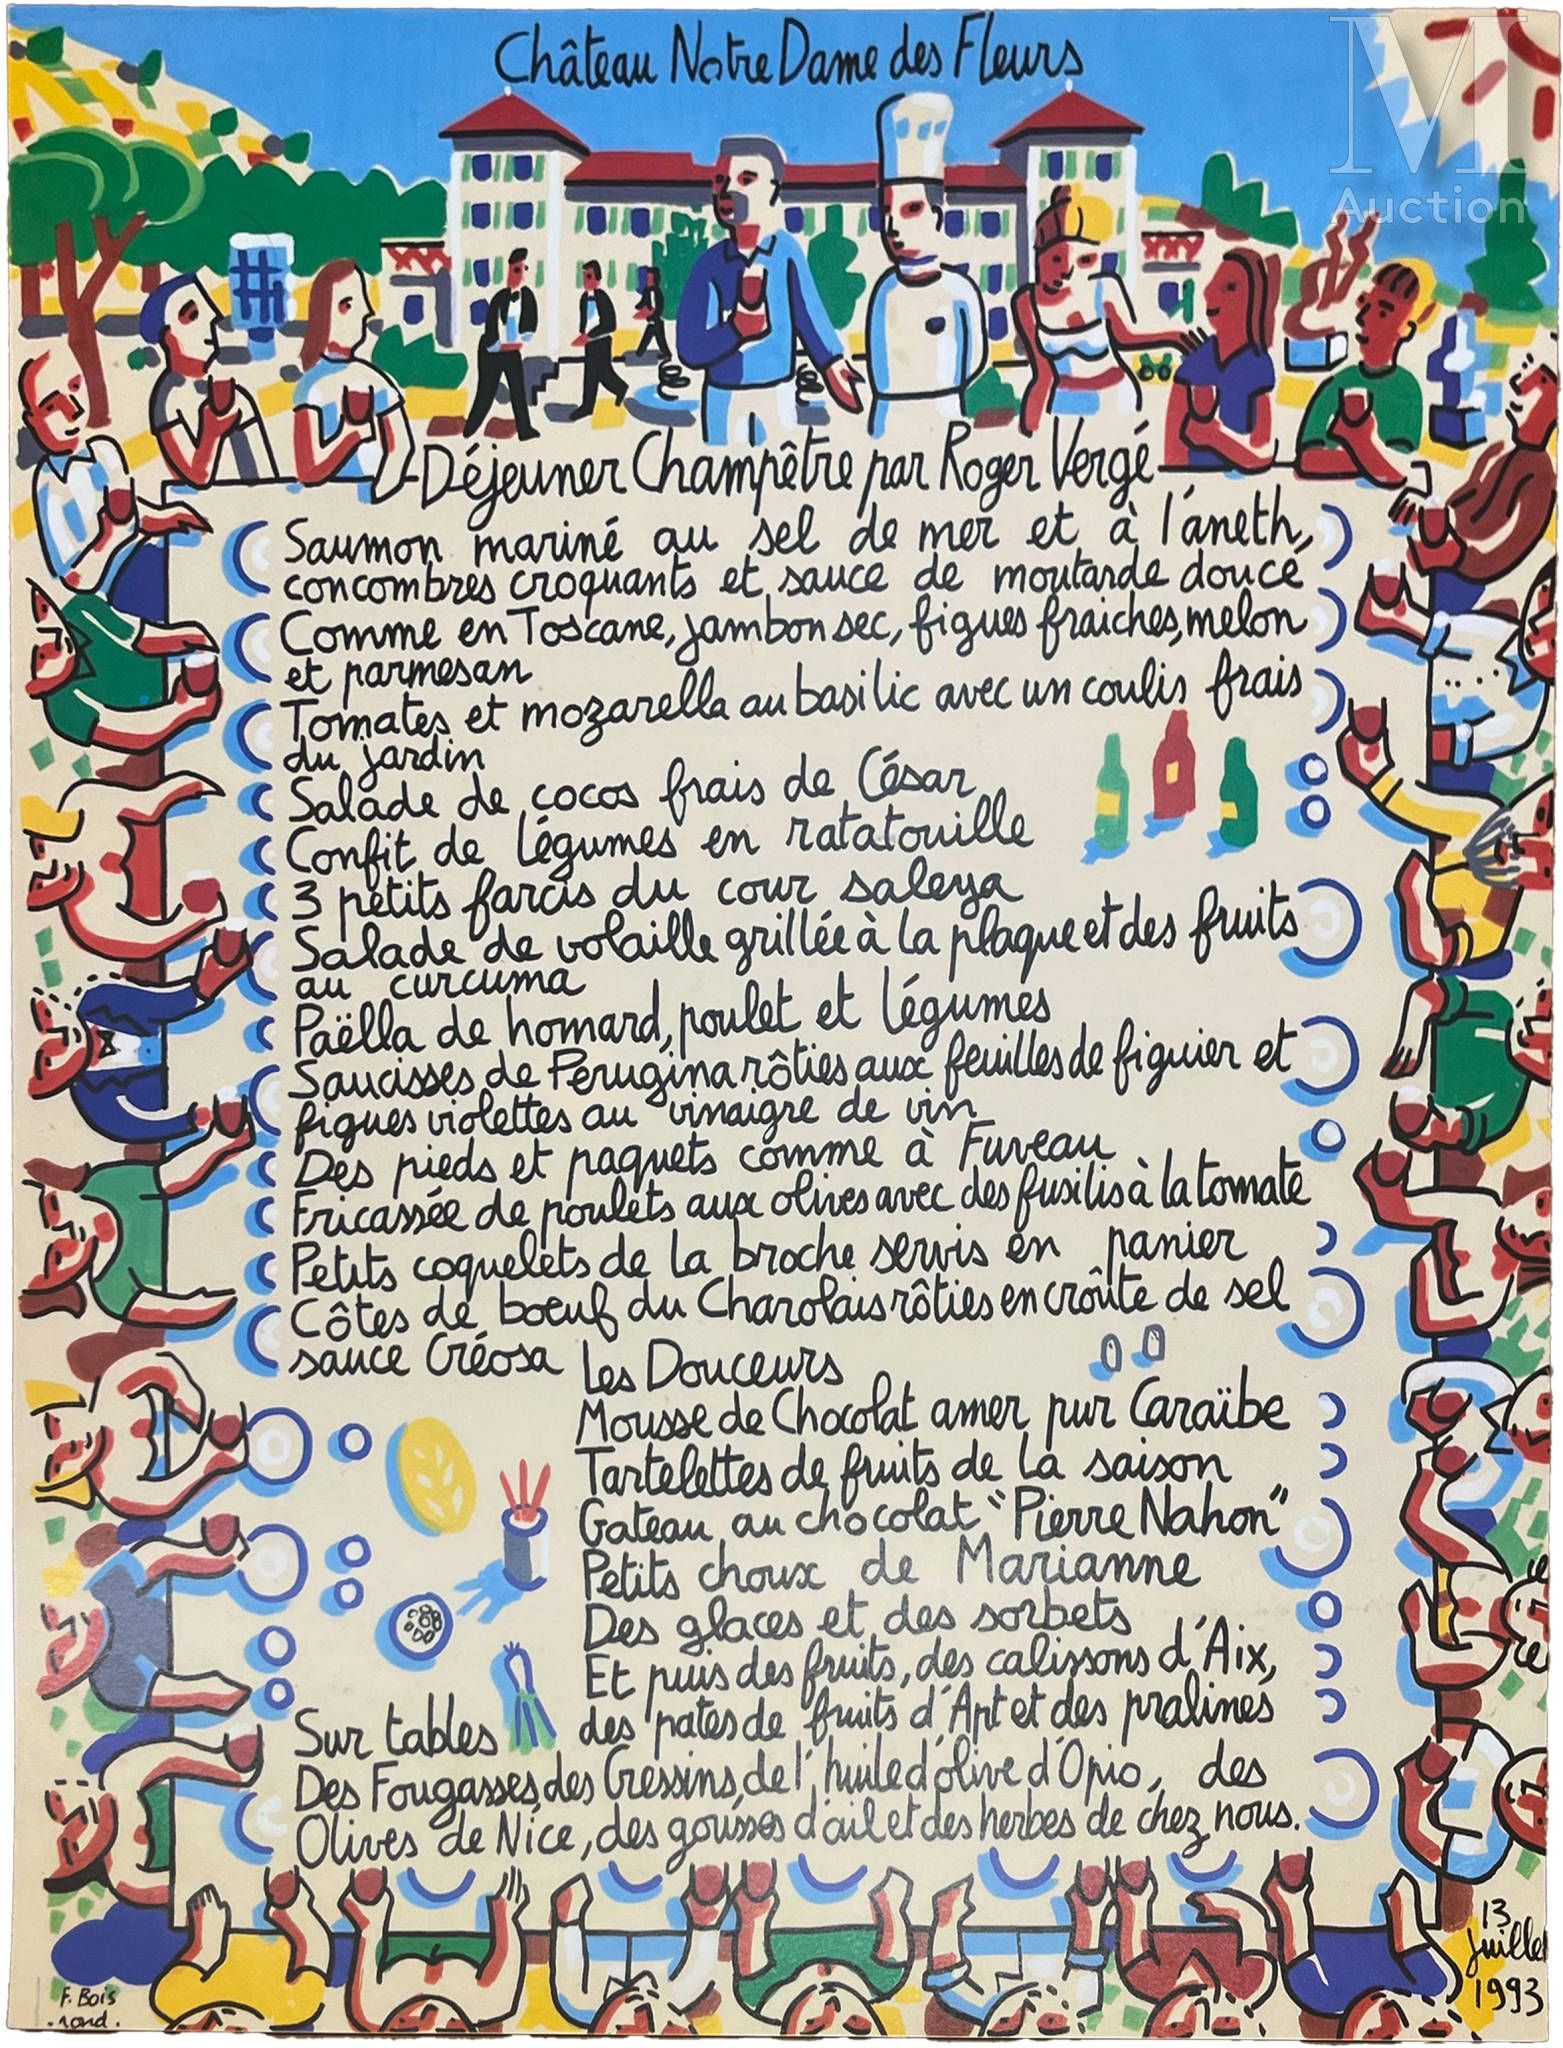 Château Notre Dame des Fleurs
M
Auction
Déjeuner Champêtre par Roger Vergé
Saumon mariné au sel de mer et à l'áneth,
concombres croquants et sauce de moutarde douce
Comme en Toscane, jambon sec, figues fraiches, melon
et parmesan
Tomates et mozarella au basilic avec un coulis frais
du jardin
Salade de cocos frais de César
Confit de légumes en ratatouille
3 petits farcis du cour saleya
Salade de volaille grillée à la plaque et des fruits
au curcuma
Paëlla de homard, poulet et légumes
Saucisses de Perugina rôties aux feuilles de figuier et
figues violettes au vinaigre de vin
Des pieds et paquets comme à Fuveau
Fricassée de poulets aux olives avec des fusilis à la tomate
Petits coquelets de la broche servis en panier
Côtes de boeuf du Charolais rôties en croûte de sel
sauce Créosa
Les Douceurs
Mousse de Chocolat amer pur Caraïbe
Tartelettes de fruits de la saison
Gateau au chocolat "Pierre Nahon"
Petits choux de Marianne
Des glaces et des sorbets
Et puis des fruits, des calissons d'Aix,
des pates de fruits d'Apt et des pralines
Sur tables
Des Fougasses, des Gressins, de l'huile d'olive d'Opio, des
Olives de Nice, des gousses d'ail et des herbes de chez nous.
13
juillet
1993
F. Bois
.rond.